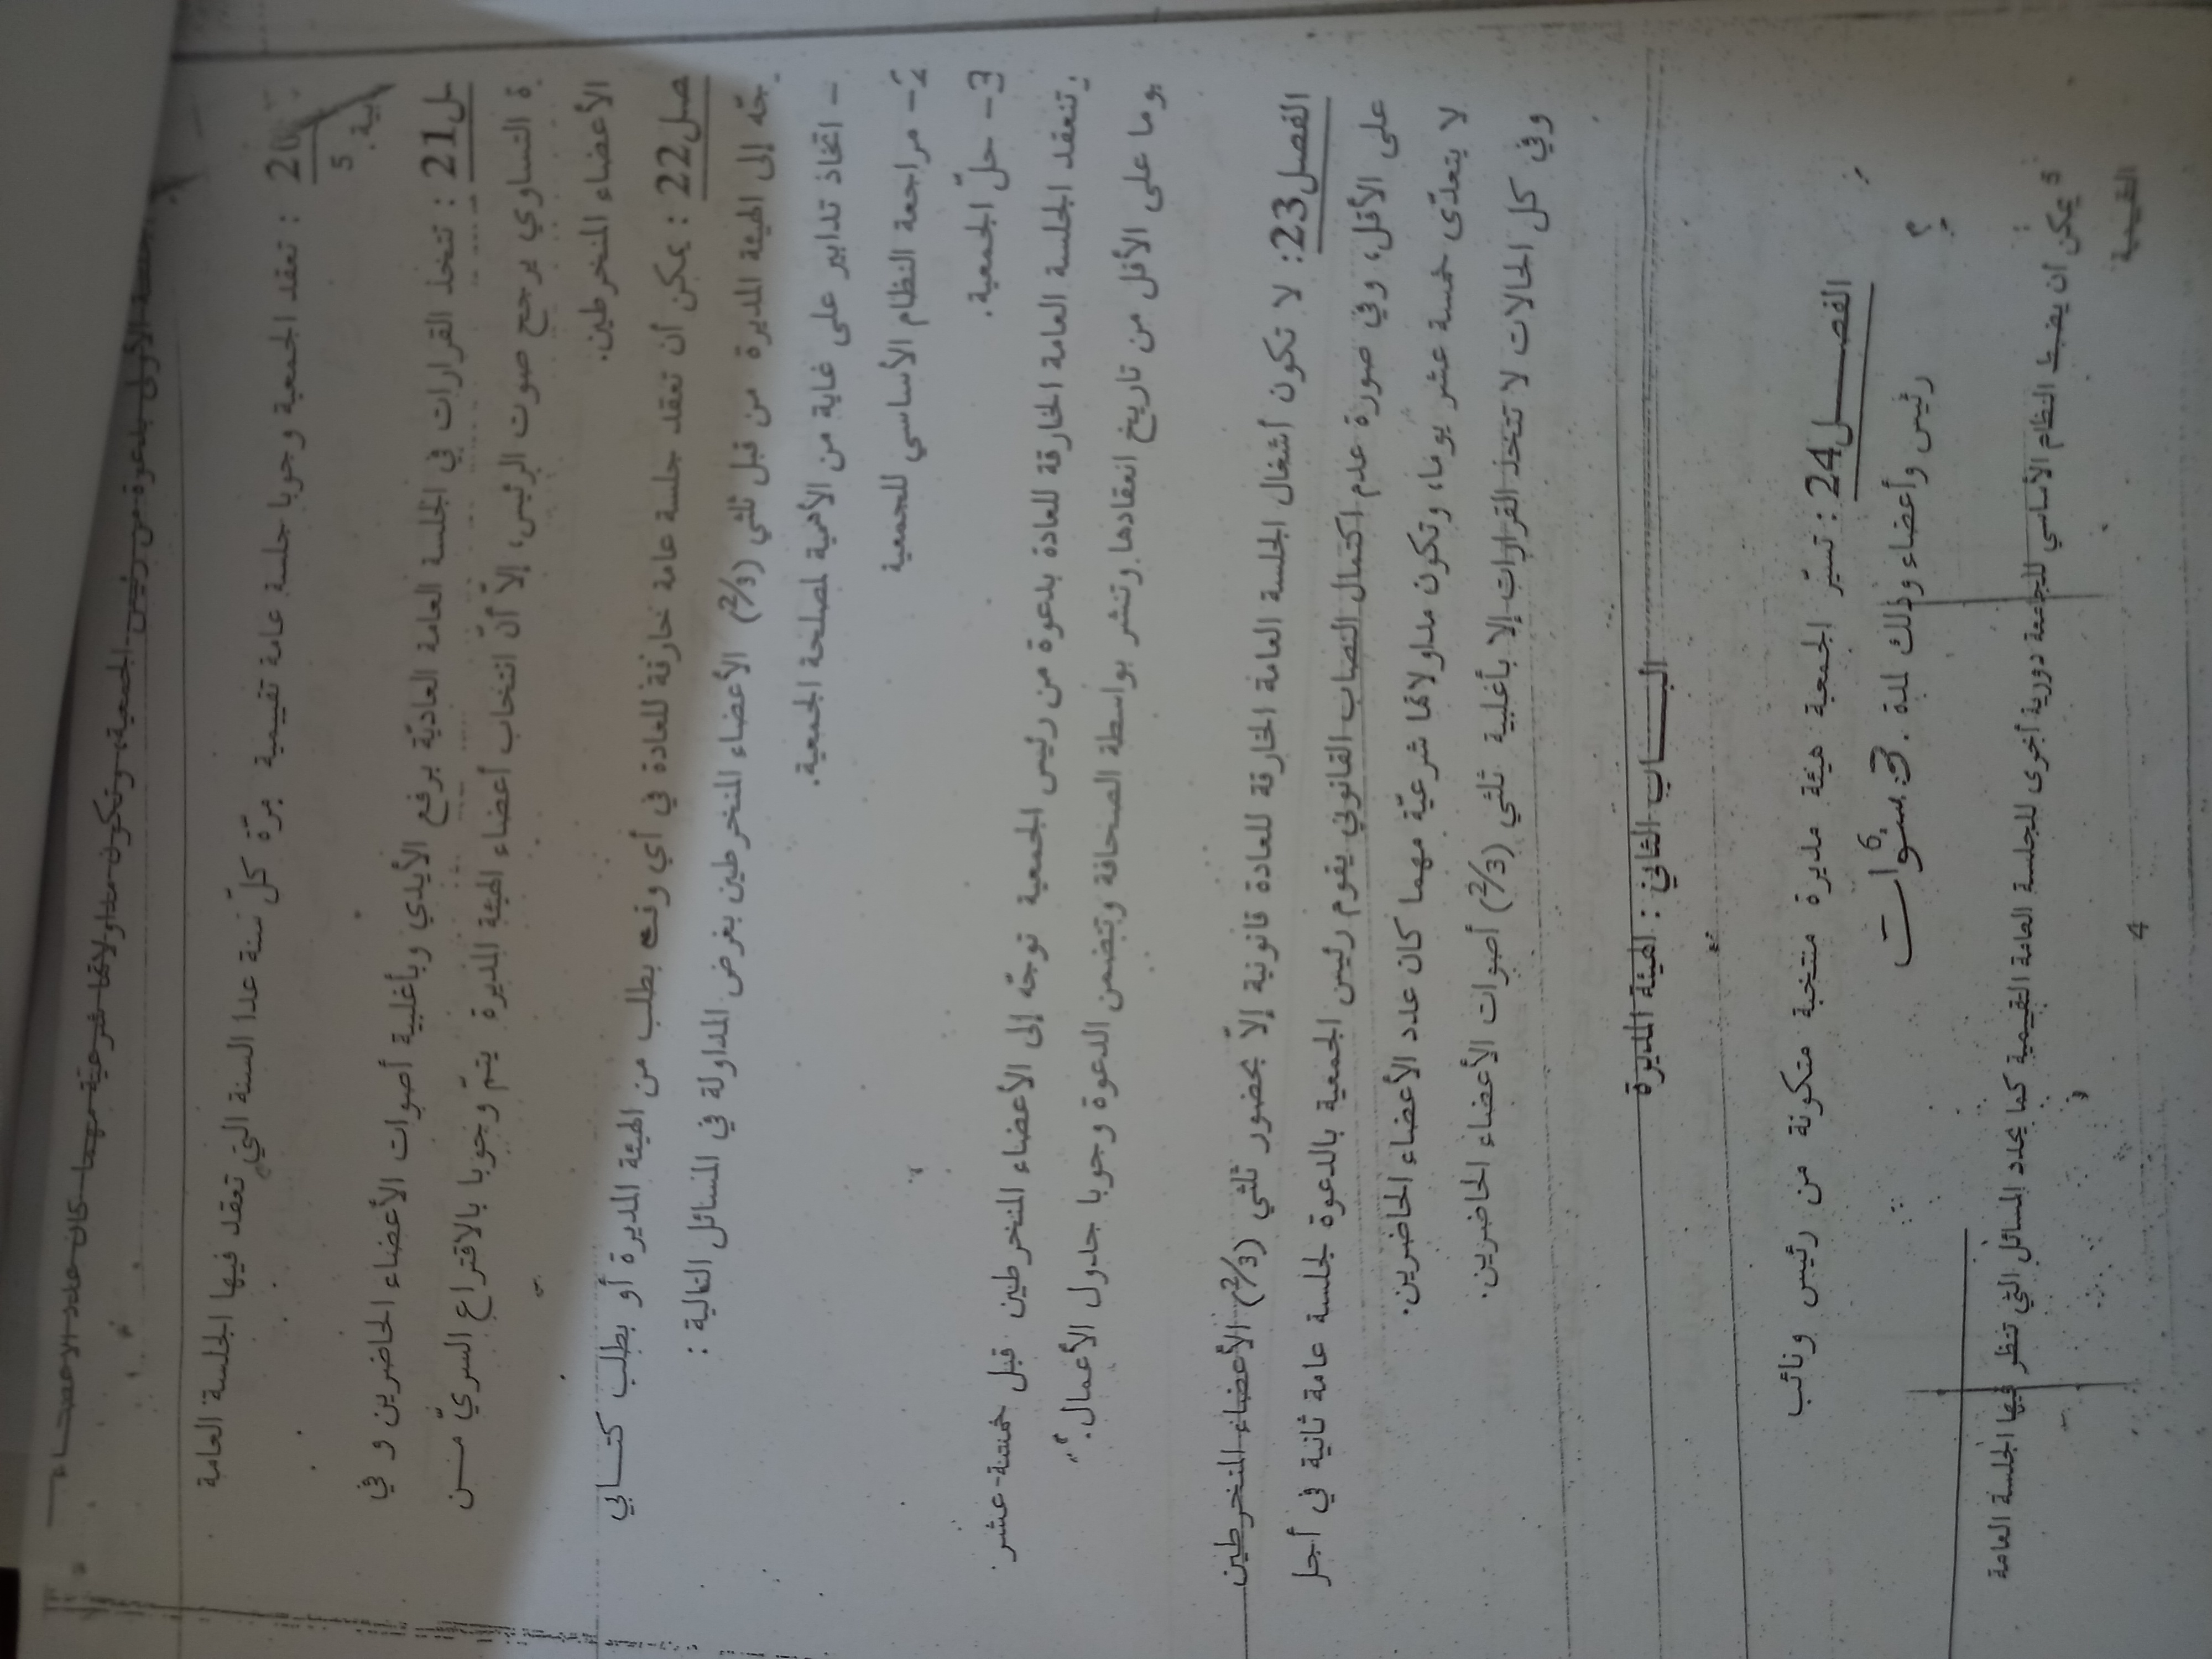 الأولى بدعوة من رئيس الجمعية، وتكون مداولاتها شرعيّة مهما كان عدد الأعضاء
20 : تعقد الجمعية وجوبا جلسة عامة تقييمية مرّة كلّ سنة عدا السنة التي تعقد فيها الجلسة العامة
ية. 5
ل21 : تتخذ القرارات في الجلسة العامة العاديّة برفع الأيدي وبأغلبية أصوات الأعضاء الحاضرين و في
ة التساوي يرجح صوت الرئيس، إلاّ أنّ انتخاب أعضاء الهيئة المديرة يتمّ وجوبا بالاقتراع السريّ من
الأعضاء المنخرطين.
صل22 : يمكن أن تعقد جلسة عامة خارقة للعادة في أي وقت بطلب من الهيئة المديرة أو بطلب كتابي
جّه إلى الهيئة المديرة من قبل ثلثي (2/3) الأعضاء المنخرطين بغرض المداولة في المسائل التالية :
- اتخاذ تدابير على غاية من الأهمية لمصلحة الجمعية.
2- مراجعة النظام الأساسي للجمعية
3- حلّ الجمعية.
وتنعقد الجلسة العامة الخارقة للعادة بدعوة من رئيس الجمعية توجّه إلى الأعضاء المنخرطين قبل خمسة-عشر
يوما على الأقل من تاريخ انعقادها وتنشر بواسطة الصحافة وتتضمن الدعوة وجوبا جدول الأعمال.
الفصل23: لا تكون أشغال الجلسة العامة الخارقة للعادة قانونية إلاّ بحضور ثلثي (2/3) الأعضاء المنخرطين
على الأقل، وفي صورة عدم اكتمال النصاب القانوني يقوم رئيس الجمعية بالدعوة لجلسة عامة ثانية في أجل
لا يتعدّى خمسة عشر يوما، وتكون مداولاتها شرعيّة مهما كان عدد الأعضاء الحاضرين.
وفي كل الحالات لا تتخذ القرارات إلا بأغلبية ثلثي (2/3) أصوات الأعضاء الحاضرين.
البــــاب الثاني : الهيئة المديرة
الفصــــل24 : تسيّر الجمعية هيئة مديرة منتخبة متكونة من رئيس ونائب
رئيس وأعضاء وذلك لمدة .3. سنوات
5 يمكن أن يضبط النظام الأساسي للجامعة دورية أخرى للجلسة العامة التقييمية كما يحدد المسائل التي تنظر فيها الجلسة العامة
التقييمية
4